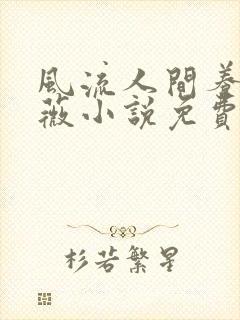 風流人間養
薇小說免費
杉若繁星